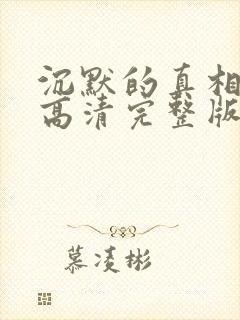 沉默的真相
高清完整版
慕凌彬